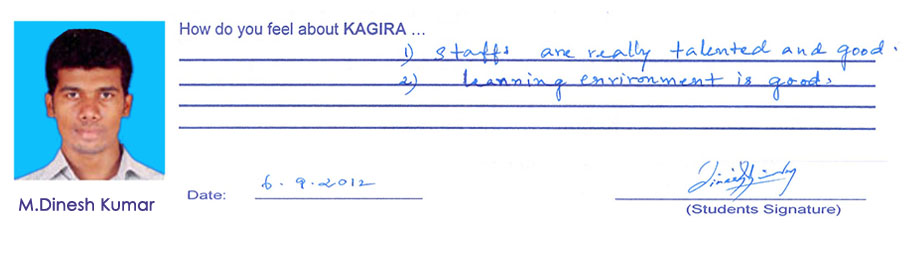 How do you feel about KAGIRA ...
1) staffs are really talented and good.
2) leanning environment is good.
Date: 6.9.2012
M.Dinesh Kumar
(Students Signature)